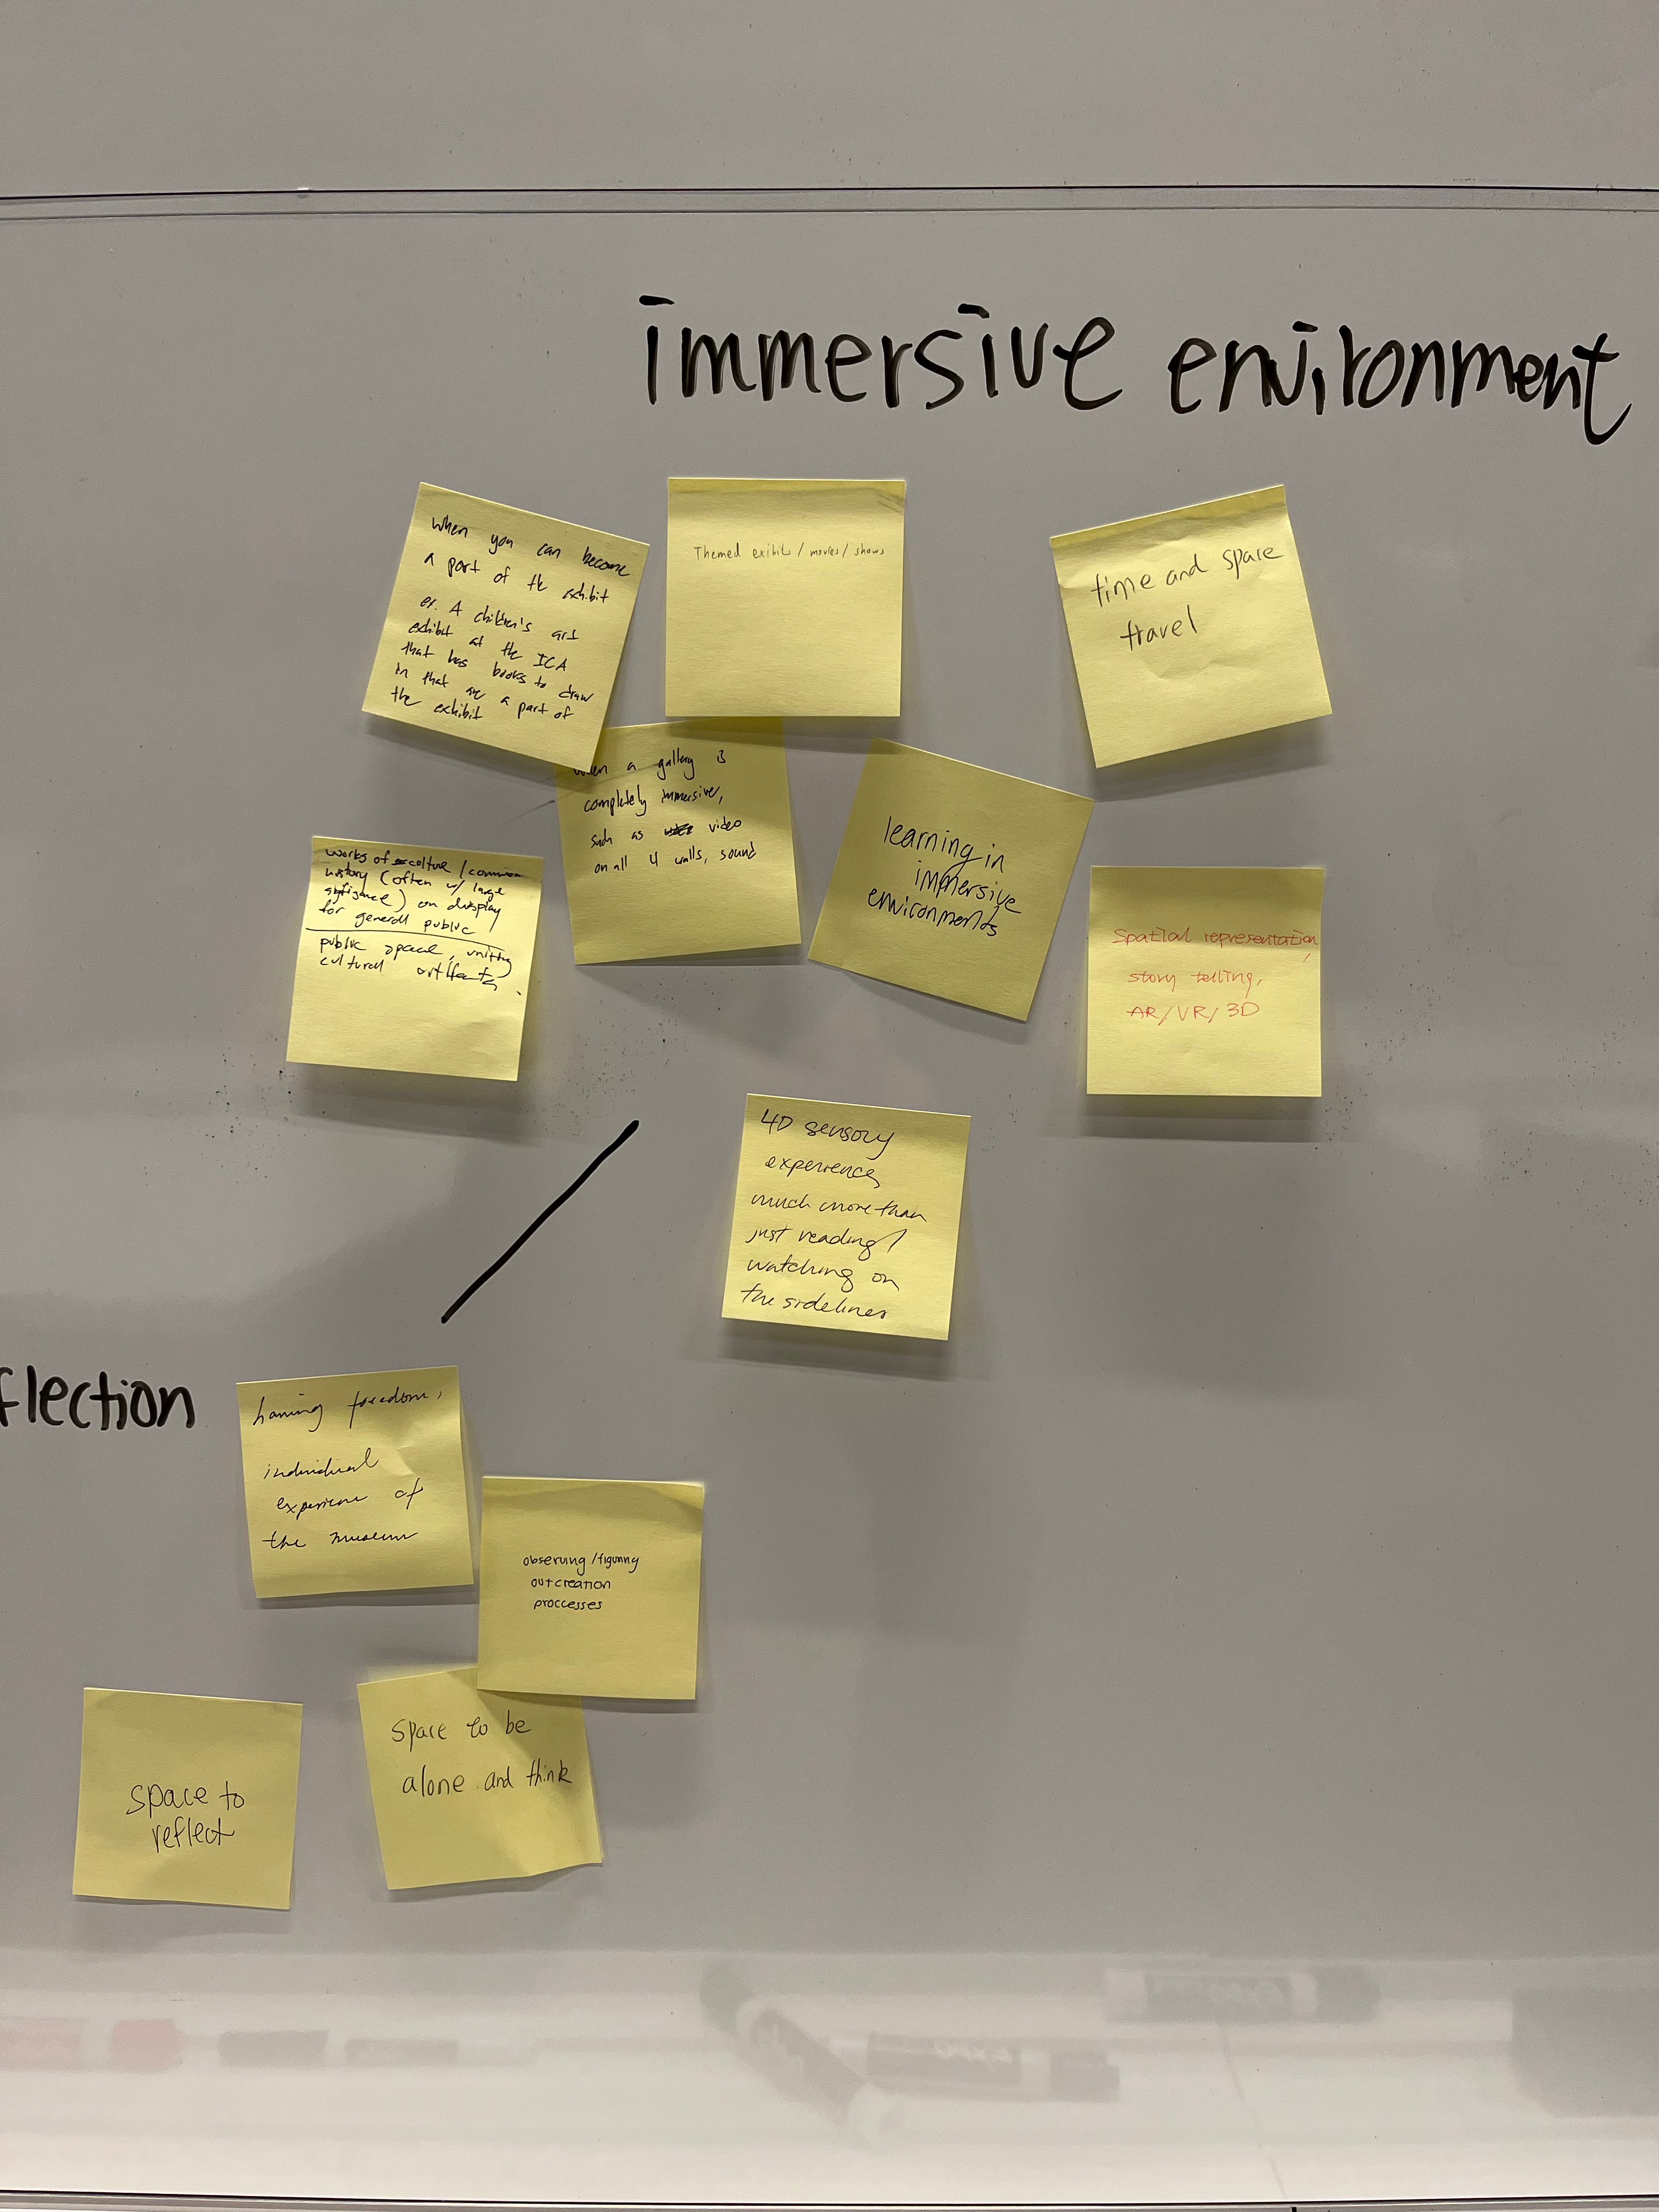 immersive environment
when you can become
a part of the exhibit
ex. A children's art
exhibit at the ICA
that has books to draw
in that are a part of
the exhibit
Themed exibits / movies / shows
time and space
travel
when a gallery is
completely immersive,
such as video
on all 4 walls, sound
learning in
immersive
environments
works of culture / common
history (often w/ large
) on display
for generall public
public space, uniting
cultural artifacts.
Spatial representation,
story telling,
AR/VR/3D
4D sensory
experience
much more than
just reading/
watching on
the sidelines
flection
having freedom,
individual
experience of
the museum
observing/figuring
out creation
proccesses
space to be
alone and think
space to
reflect